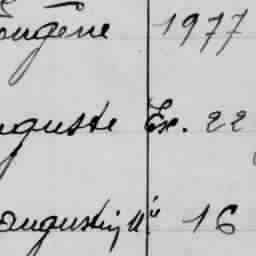 Eugène 1977
Auguste Ex. 22
Augustin 16